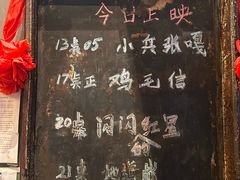 今日上映
13点05 小兵张嘎
17点正 鸡毛信
20点 闪闪红星
的
21点 地道战